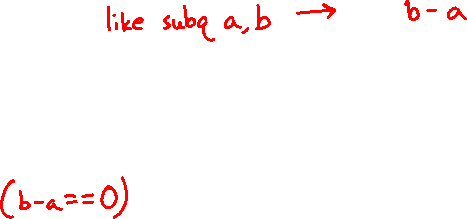 like subq a,b → b-a
(b-a==0)